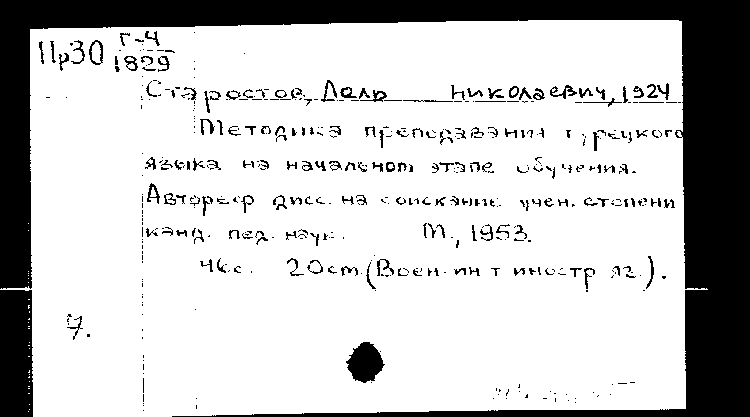 Пр30 Г-4
1829
Старостов, Лель Николаевич, 1924
Методика преподавания турецкого
языка на начальном этапе обучения.
Автореф дисс. на соискание учен. степени
канд. пед. наук. М., 1953.
46с. 20см. (Воен. ин-т иностр яз.).
7.